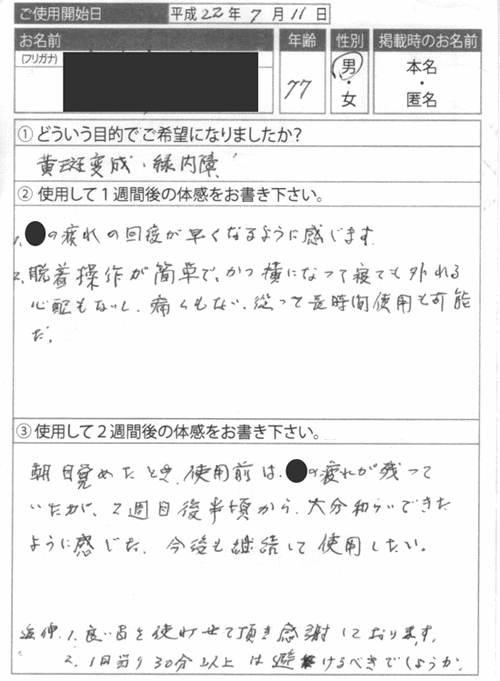 ご使用開始日 平成22年7月11日
お名前 年齢 性別 掲載時のお名前
(フリガナ) 77 男・女 本名・匿名
①どういう目的でご希望になりましたか?
黄斑変成・緑内障
②使用して1週間後の体感をお書き下さい。
1. の疲れの回復が早くなるように感じます
2. 脱着操作が簡単で、かつ横になって寝ても外れる
心配もないし、痛くもない、従って長時間使用も可能
だ。
③使用して2週間後の体感をお書き下さい。
朝目覚めたとき、使用前は、の疲れが残って
いたが、2週目後半頃から、大分和らいできた
ように感じた、今後も継続して使用したい。
追伸. 1. 良い品を使わせて頂き感謝しております。
2. 1回当り30分以上は避けるべきでしょうか